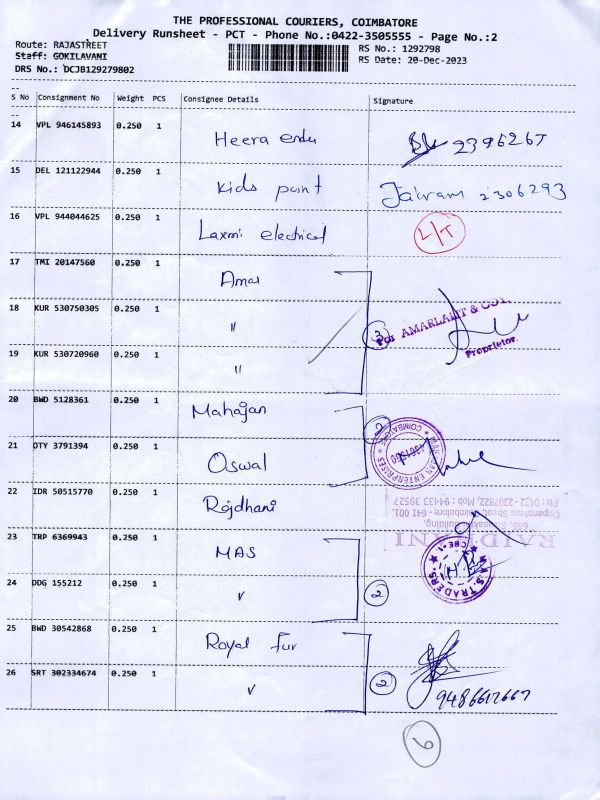 THE PROFESSIONAL COURIERS, COIMBATORE
Delivery Runsheet - PCT - Phone No.:0422-3505555 - Page No.:2
Route: RAJASTREET
Staff: GOKILAVANI
DRS No.: DCJB129279802
RS No.: 1292798
RS Date: 20-Dec-2023
S No Consignment No Weight PCS Consignee Details Signature
14 VPL 946145893 0.250 1 Heera 2396267
15 DEL 121122944 0.250 1 Kids point 2306293
16 VPL 944044625 0.250 1 Laxmi electrical L/T
17 TMI 20147560 0.250 1 Amar
18 KUR 530750305 0.250 1 "
3
For AMARLALIT & COY.
Proprietor.
19 KUR 530720960 0.250 1 "
20 BWD 5128361 0.250 1 Mahajan
21 OTY 3791394 0.250 1 Oswal
ENTERPRISES * COIMBATORE
22 IDR 50515770 0.250 1 Rajdhani
RAJDHANI
Building,
Street, Coimbatore - 641 001.
Ph : 0422 - 2307822, Mob : 94433 39527
23 TRP 6369943 0.250 1 MAS
S. TRADERS CBE-1
24 DDG 155212 0.250 1 " 2
25 BWD 30542868 0.250 1 Royal fur
26 SRT 302334674 0.250 1 " 2
9486617667
6